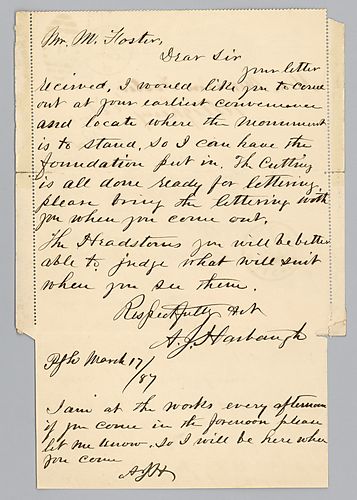 Mr. M. Foster,
Dear Sir
your letter
recived. I would like you to come
out at your earliest convenience
and locate where the monument
is to stand, so I can have the
foundation put in. The Cutting
is all done ready for lettering.
please bring the lettering with
you when you come out.
The Headstones you will be better
able to judge what will suit
when you see them.
Respectfully
A. J. Harbaugh
Pgh March 17/
/87
I am at the works every afternoon
if you come in the forenoon please
let me know. so I will be here when
you come
AJH